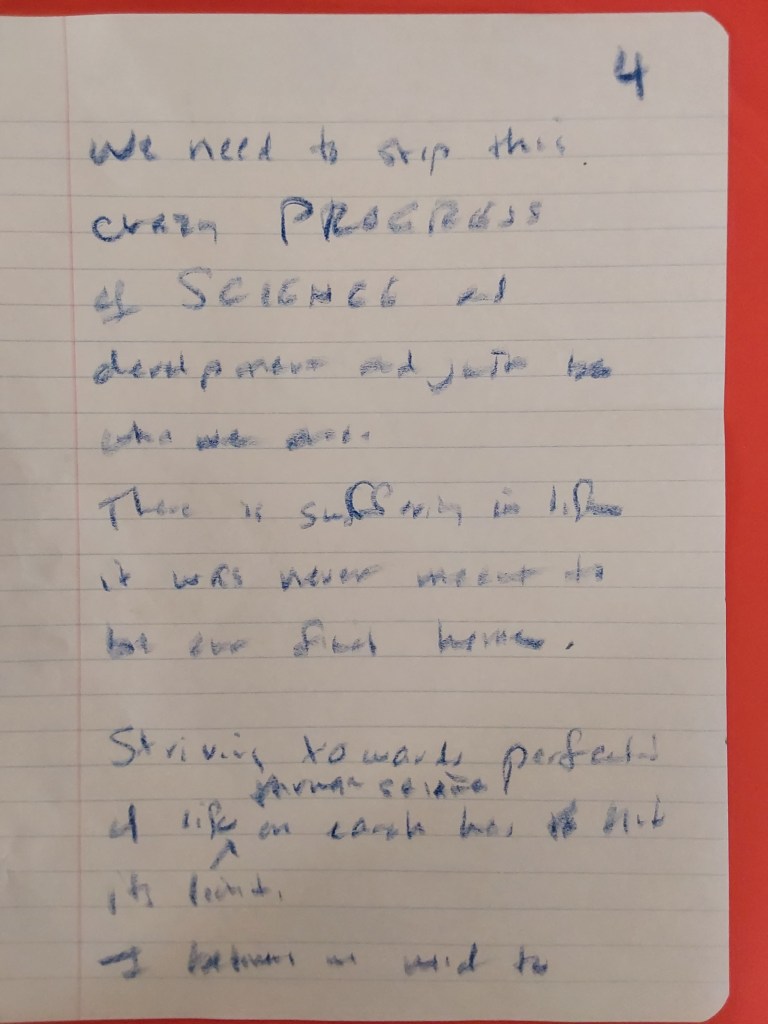 4
We need to stop this
crazy PROGRESS
of SCIENCE and
development and just be
who we are.
There is suffering in life
it was never meant to
be our final home.
Striving towards perfection
through science
of life on earth has hit
its limit.
I believe we need to